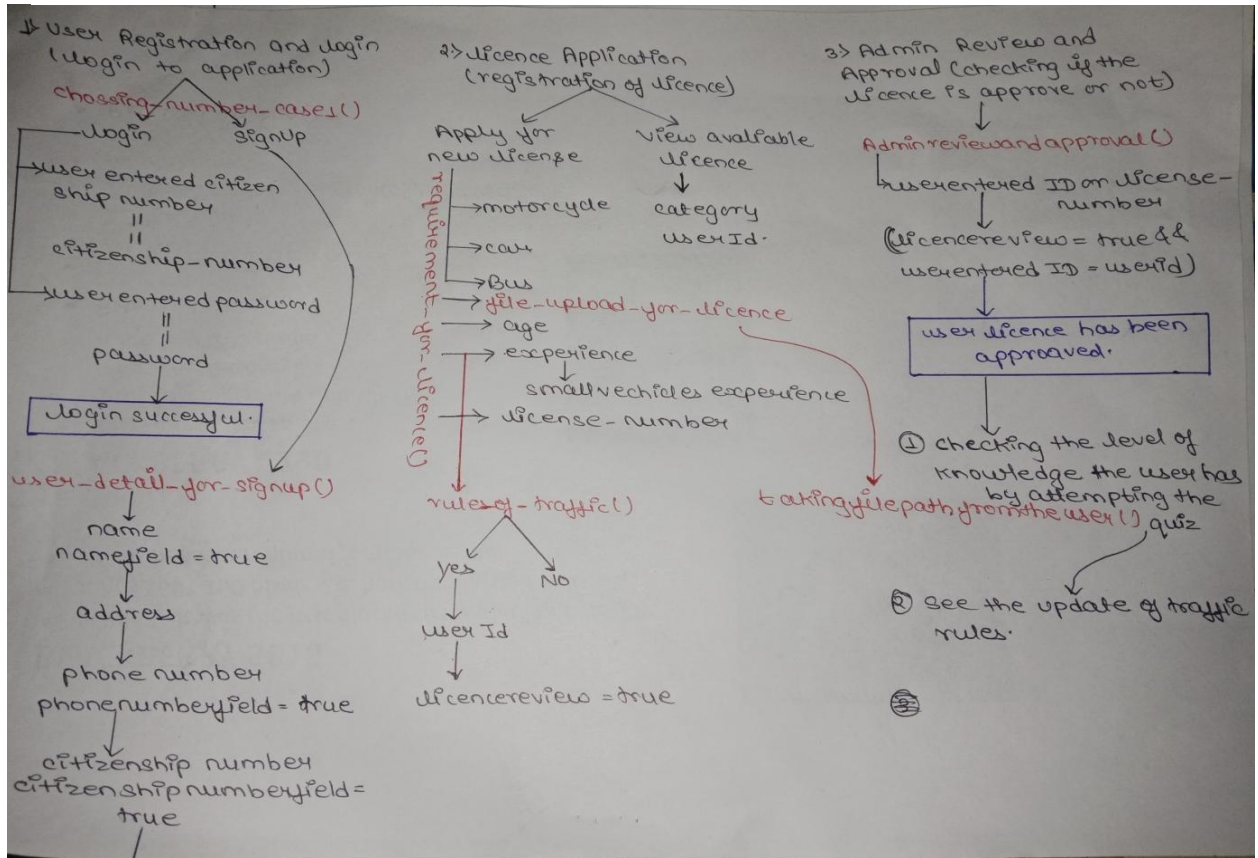 1> User Registration and login
(login to application)
chossing_number_cases()
login
signup
user entered citizen
ship number
==
citizenship-number
user entered password
==
password
login successful.
user_detail_for_signup()
name
namefield = true
address
phone number
phonenumberfield = true
citizenship number
citizenshipnumberfield =
true
2> licence Application
(registration of licence)
Apply for
new license
view avaliable
licence
category
userId.
requirement_for_licence()
motorcycle
car
Bus
file_upload_for_licence
age
experience
small vechicles experience
license-number
rules_of_traffic()
yes
No
user Id
licencereview = true
3> Admin Review and
Approval (checking if the
licence is approve or not)
Adminreviewandapproval()
userentered ID or license-
number
(licencereview = true &&
userentered ID = userid)
user licence has been
approaved.
① checking the level of
knowledge the user has
by attempting the
quiz
takingfilepathfromtheuser()
② see the update of traffic
rules.